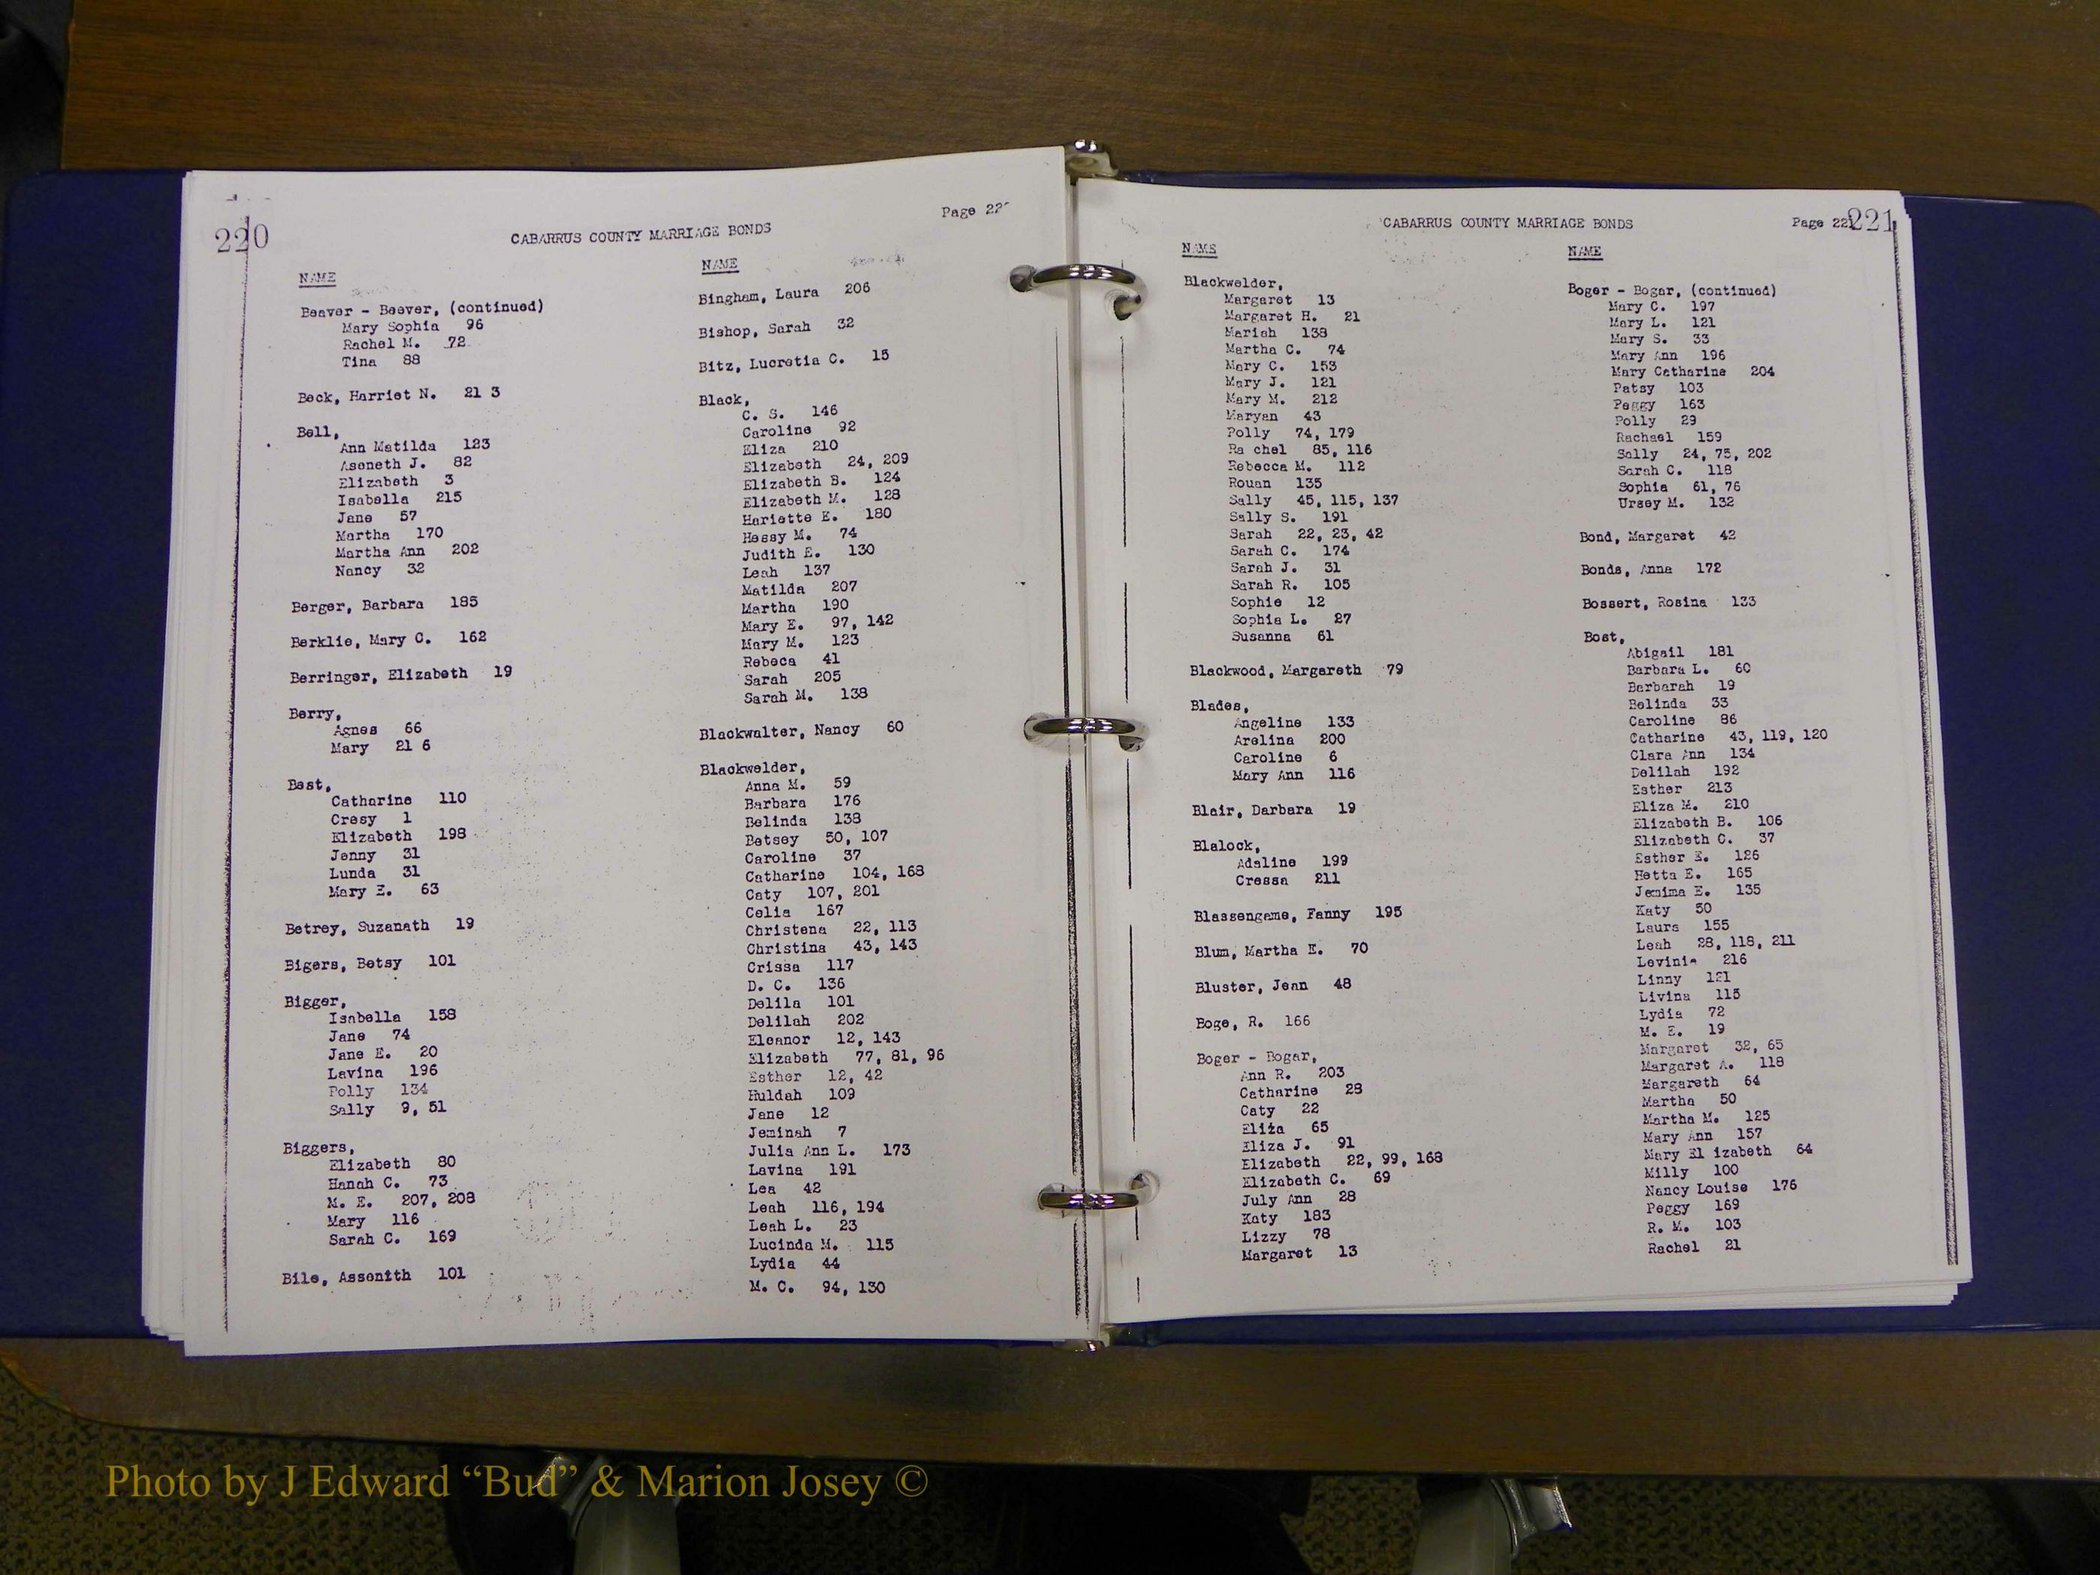 220
CABARRUS COUNTY MARRIAGE BONDS
Page 22
NAME
Beaver - Beever, (continued)
Mary Sophia 96
Rachel M. 72
Tina 88
Beck, Harriet N. 21 3
Bell,
Ann Matilda 123
Aseneth J. 82
Elizabeth 3
Isabella 215
Jane 57
Martha 170
Martha Ann 202
Nancy 32
Berger, Barbara 185
Berklie, Mary C. 162
Berringer, Elizabeth 19
Berry,
Agnes 66
Mary 21 6
Best,
Catharine 110
Cresy 1
Elizabeth 198
Jenny 31
Lunda 31
Mary E. 63
Betrey, Suzanath 19
Bigers, Betsy 101
Bigger,
Isabella 158
Jane 74
Jane E. 20
Lavina 196
Polly 134
Sally 9, 51
Biggers,
Elizabeth 80
Hanah C. 73
M. E. 207, 208
Mary 116
Sarah C. 169
Bile, Assenith 101
NAME
Bingham, Laura 206
Bishop, Sarah 32
Bitz, Lucretia C. 15
Black,
C. S. 146
Caroline 92
Eliza 210
Elizabeth 24, 209
Elizabeth B. 124
Elizabeth M. 128
Hariette E. 180
Hessy M. 74
Judith E. 130
Leah 137
Matilda 207
Martha 190
Mary E. 97, 142
Mary M. 123
Rebeca 41
Sarah 205
Sarah M. 138
Blackwalter, Nancy 60
Blackwelder,
Anna M. 59
Barbara 176
Belinda 138
Betsey 50, 107
Caroline 37
Catharine 104, 168
Caty 107, 201
Celia 167
Christena 22, 113
Christina 43, 143
Crissa 117
D. C. 136
Delila 101
Delilah 202
Eleanor 12, 143
Elizabeth 77, 81, 96
Esther 12, 42
Huldah 109
Jane 12
Jeminah 7
Julia Ann L. 173
Lavina 191
Lea 42
Leah 116, 194
Leah L. 23
Lucinda M. 115
Lydia 44
M. C. 94, 130
CABARRUS COUNTY MARRIAGE BONDS
Page 221
221
NAME
Blackwelder,
Margaret 13
Margaret H. 21
Mariah 138
Martha C. 74
Mary C. 153
Mary J. 121
Mary M. 212
Maryan 43
Polly 74, 179
Ra chel 85, 116
Rebecca M. 112
Rouan 135
Sally 45, 115, 137
Sally S. 191
Sarah 22, 23, 42
Sarah C. 174
Sarah J. 31
Sarah R. 105
Sophie 12
Sophia L. 27
Susanna 61
Blackwood, Margareth 79
Blades,
Angeline 133
Arelina 200
Caroline 6
Mary Ann 116
Blair, Darbara 19
Blalock,
Adaline 199
Cressa 211
Blassengame, Fanny 195
Blum, Martha E. 70
Bluster, Jean 48
Boge, R. 166
Boger - Bogar,
Ann R. 203
Catharine 28
Caty 22
Eliza 65
Eliza J. 91
Elizabeth 22, 99, 168
Elizabeth C. 69
July Ann 28
Katy 183
Lizzy 78
Margaret 13
NAME
Boger - Bogar, (continued)
Mary C. 197
Mary L. 121
Mary S. 33
Mary Ann 196
Mary Catharine 204
Patsy 103
Peggy 163
Polly 29
Rachael 159
Sally 24, 75, 202
Sarah C. 118
Sophia 61, 76
Ursey M. 132
Bond, Margaret 42
Bonds, Anna 172
Bossert, Rosina 133
Bost,
Abigail 181
Barbara L. 60
Barbarah 19
Belinda 33
Caroline 86
Catharine 43, 119, 120
Clara Ann 134
Delilah 192
Esther 213
Eliza M. 210
Elizabeth B. 106
Elizabeth C. 37
Esther E. 126
Hetta E. 165
Jemima E. 135
Katy 50
Laura 155
Leah 28, 118, 211
Levinia 216
Linny 121
Livina 115
Lydia 72
M. E. 19
Margaret 32, 65
Margaret A. 118
Margareth 64
Martha 50
Martha M. 125
Mary Ann 157
Mary El izabeth 64
Milly 100
Nancy Louise 176
Peggy 169
R. M. 103
Rachel 21
Photo by J Edward “Bud” & Marion Josey ©